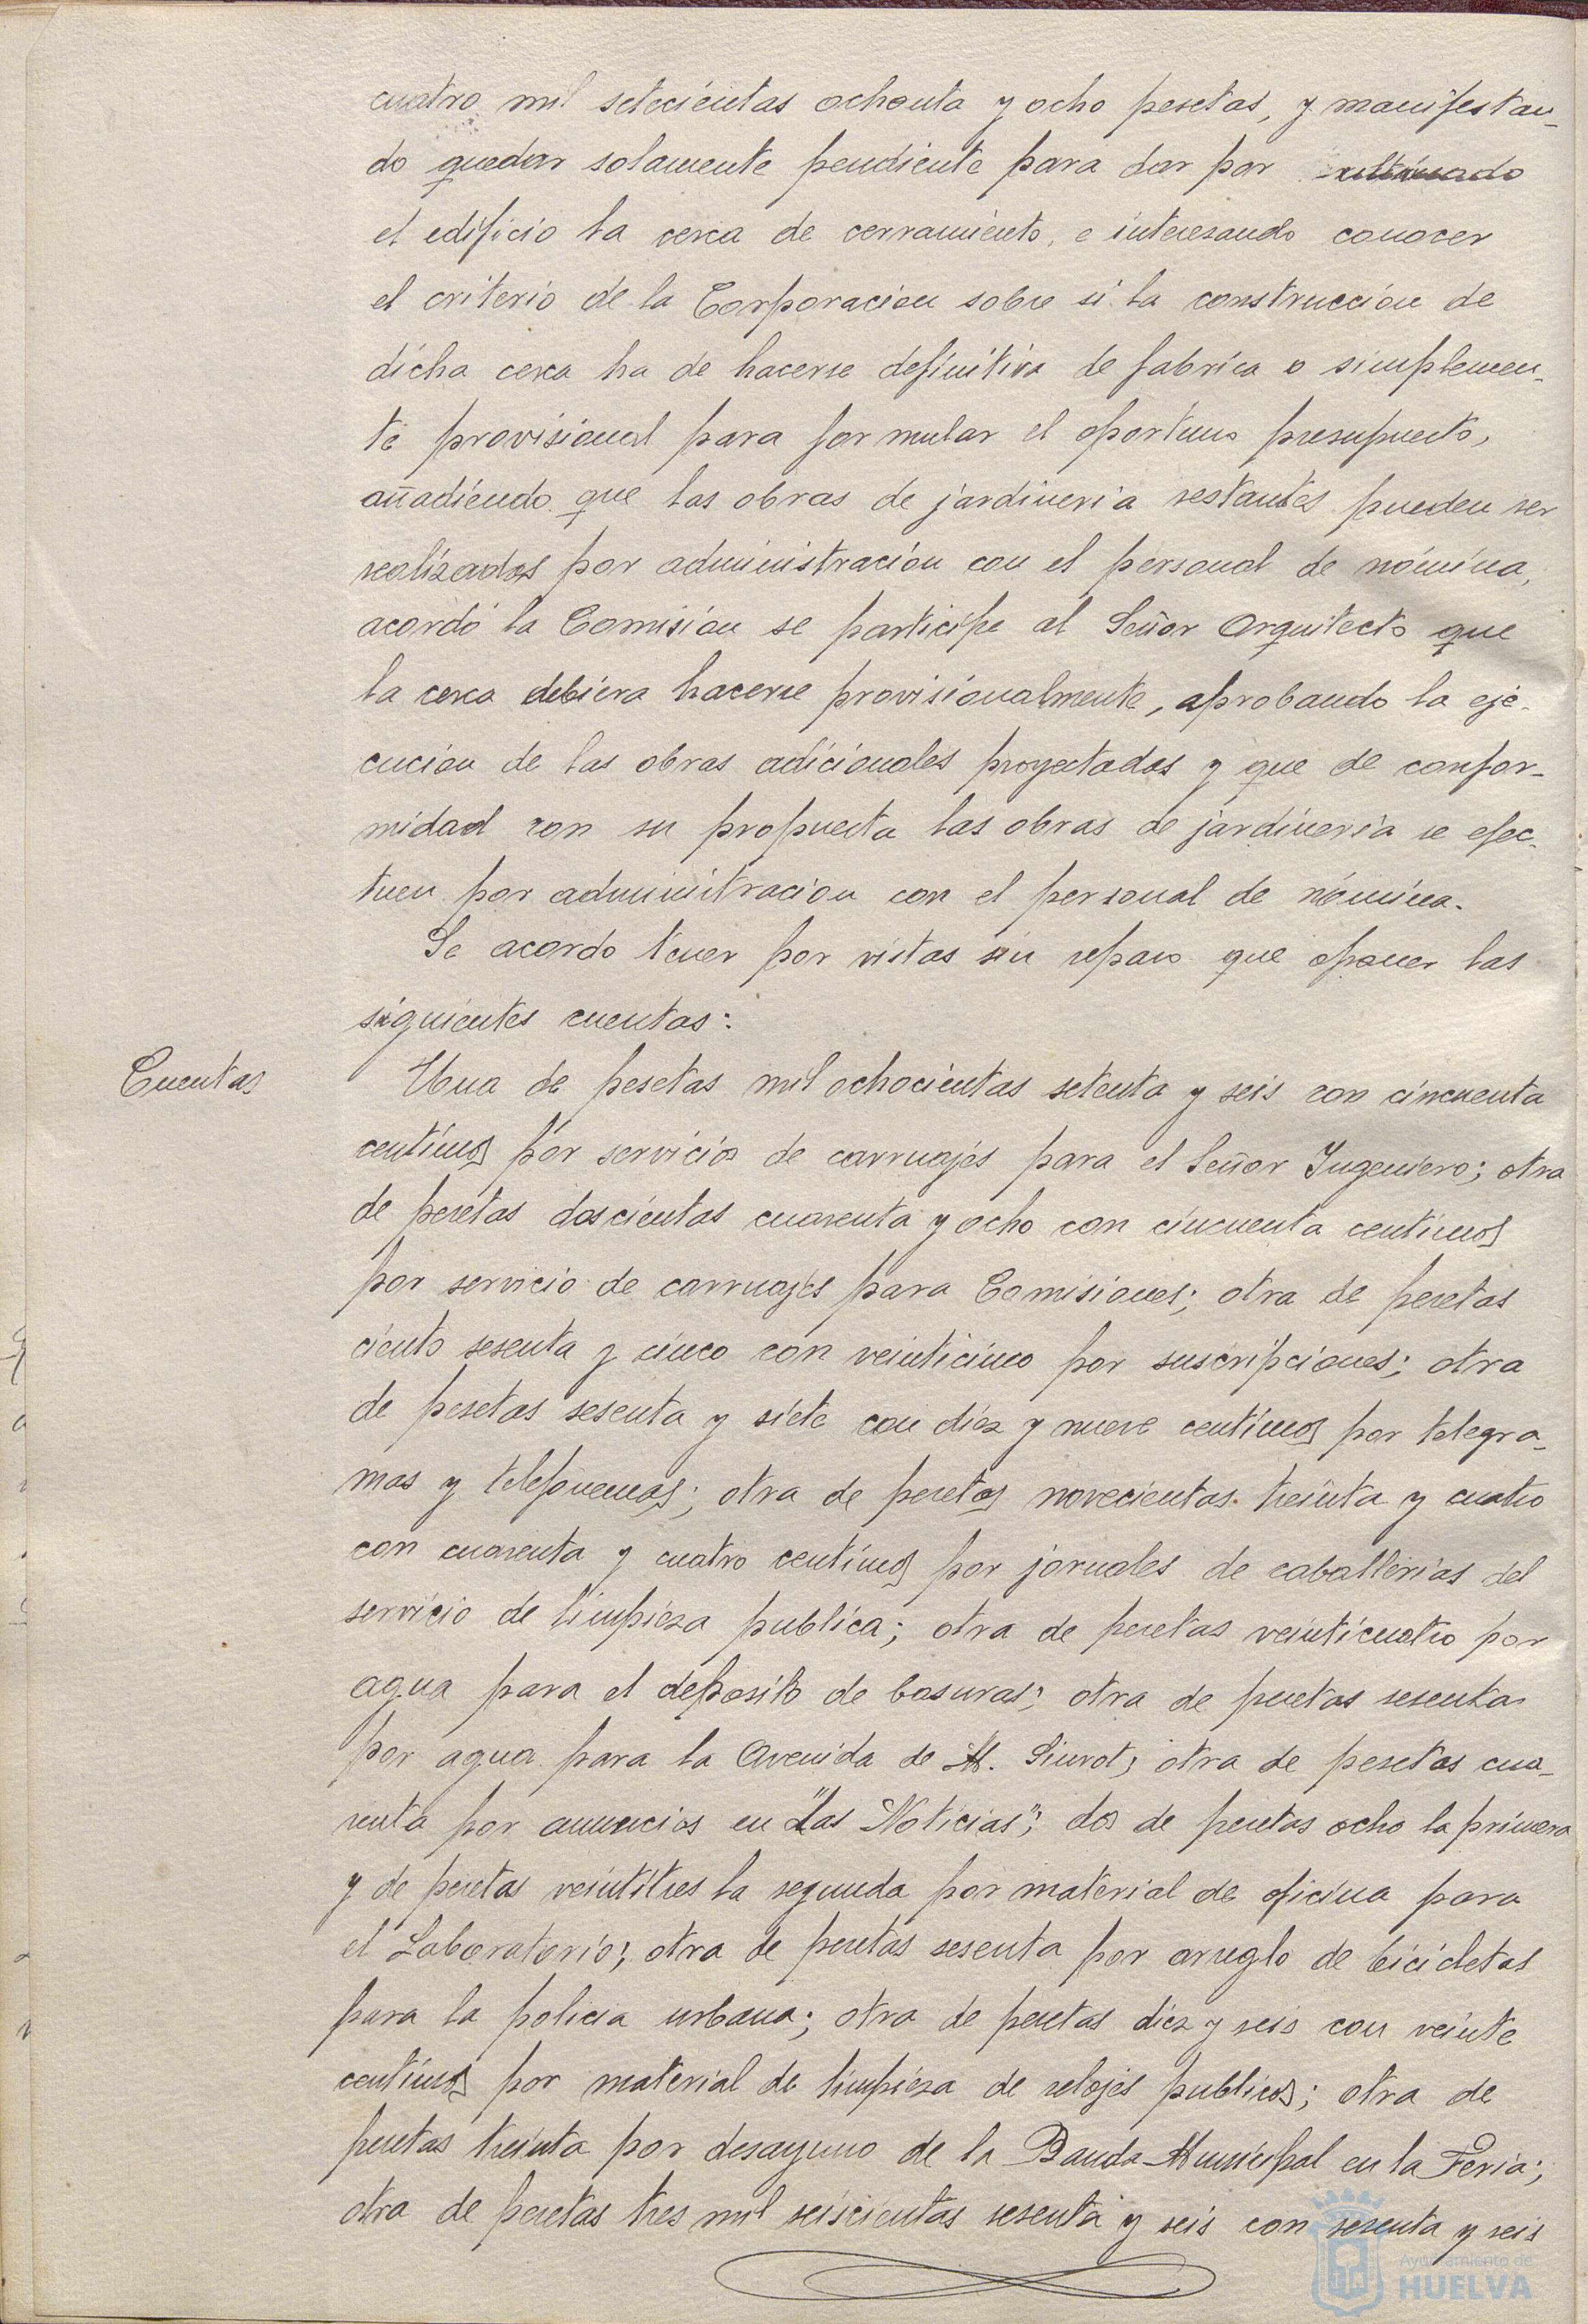 cuatro mil setecientas ochenta y ocho pesetas, y manifestan-
do quedar solamente pendiente para dar por ultimado
el edificio la cerca de cerramiento, e interesando conocer
el criterio de la Corporacion sobre si la construcción de
dicha cerca ha de hacerse definitiva de fabrica o simplemen-
te provisional para formular el oportuno presupuesto,
añadiendo que las obras de jardineria restantes pueden ser
realizadas por administración con el personal de nómina,
acordó la Comisión se participe al Señor Arquitecto que
la cerca debiera hacerse provisionalmente, aprobando la eje-
cucion de las obras adicionales proyectadas y que de confor-
midad con su propuesta las obras de jardineria se efec-
tuen por administracion con el personal de nómina.
Se acordo tener por vistas sin reparo que oponer las
siguientes cuentas:
Cuentas
Una de pesetas mil ochocientas setenta y seis con cincuenta
centimos por servicios de carruajes para el Señor Ingeniero; otra
de pesetas doscientas cuarenta y ocho con cincuenta centimos
por servicio de carruajes para Comisiones; otra de pesetas
ciento sesenta y cinco con veinticinco por suscripciones; otra
de pesetas sesenta y siete con diez y nueve centimos por telegra-
mas y telefonemas; otra de pesetas novecientas treinta y cuatro
con cuarenta y cuatro centimos por jornales de caballerias del
servicio de limpieza publica; otra de pesetas veinticuatro por
agua para el deposito de basuras; otra de pesetas sesenta
por agua para la Avenida de M. Siurot; otra de pesetas cua-
renta por anuncios en "Las Noticias"; dos de pesetas ocho la primera
y de pesetas veintitres la segunda por material de oficina para
el Laboratorio; otra de pesetas sesenta por arreglo de bicicletas
para la policia urbana; otra de pesetas diez y seis con veinte
centimos por material de limpieza de relojes publicos; otra de
pesetas treinta por desayuno de la Banda Municipal en la Feria;
otra de pesetas tres mil seiscientas sesenta y seis con sesenta y seis
Ayuntamiento de
HUELVA